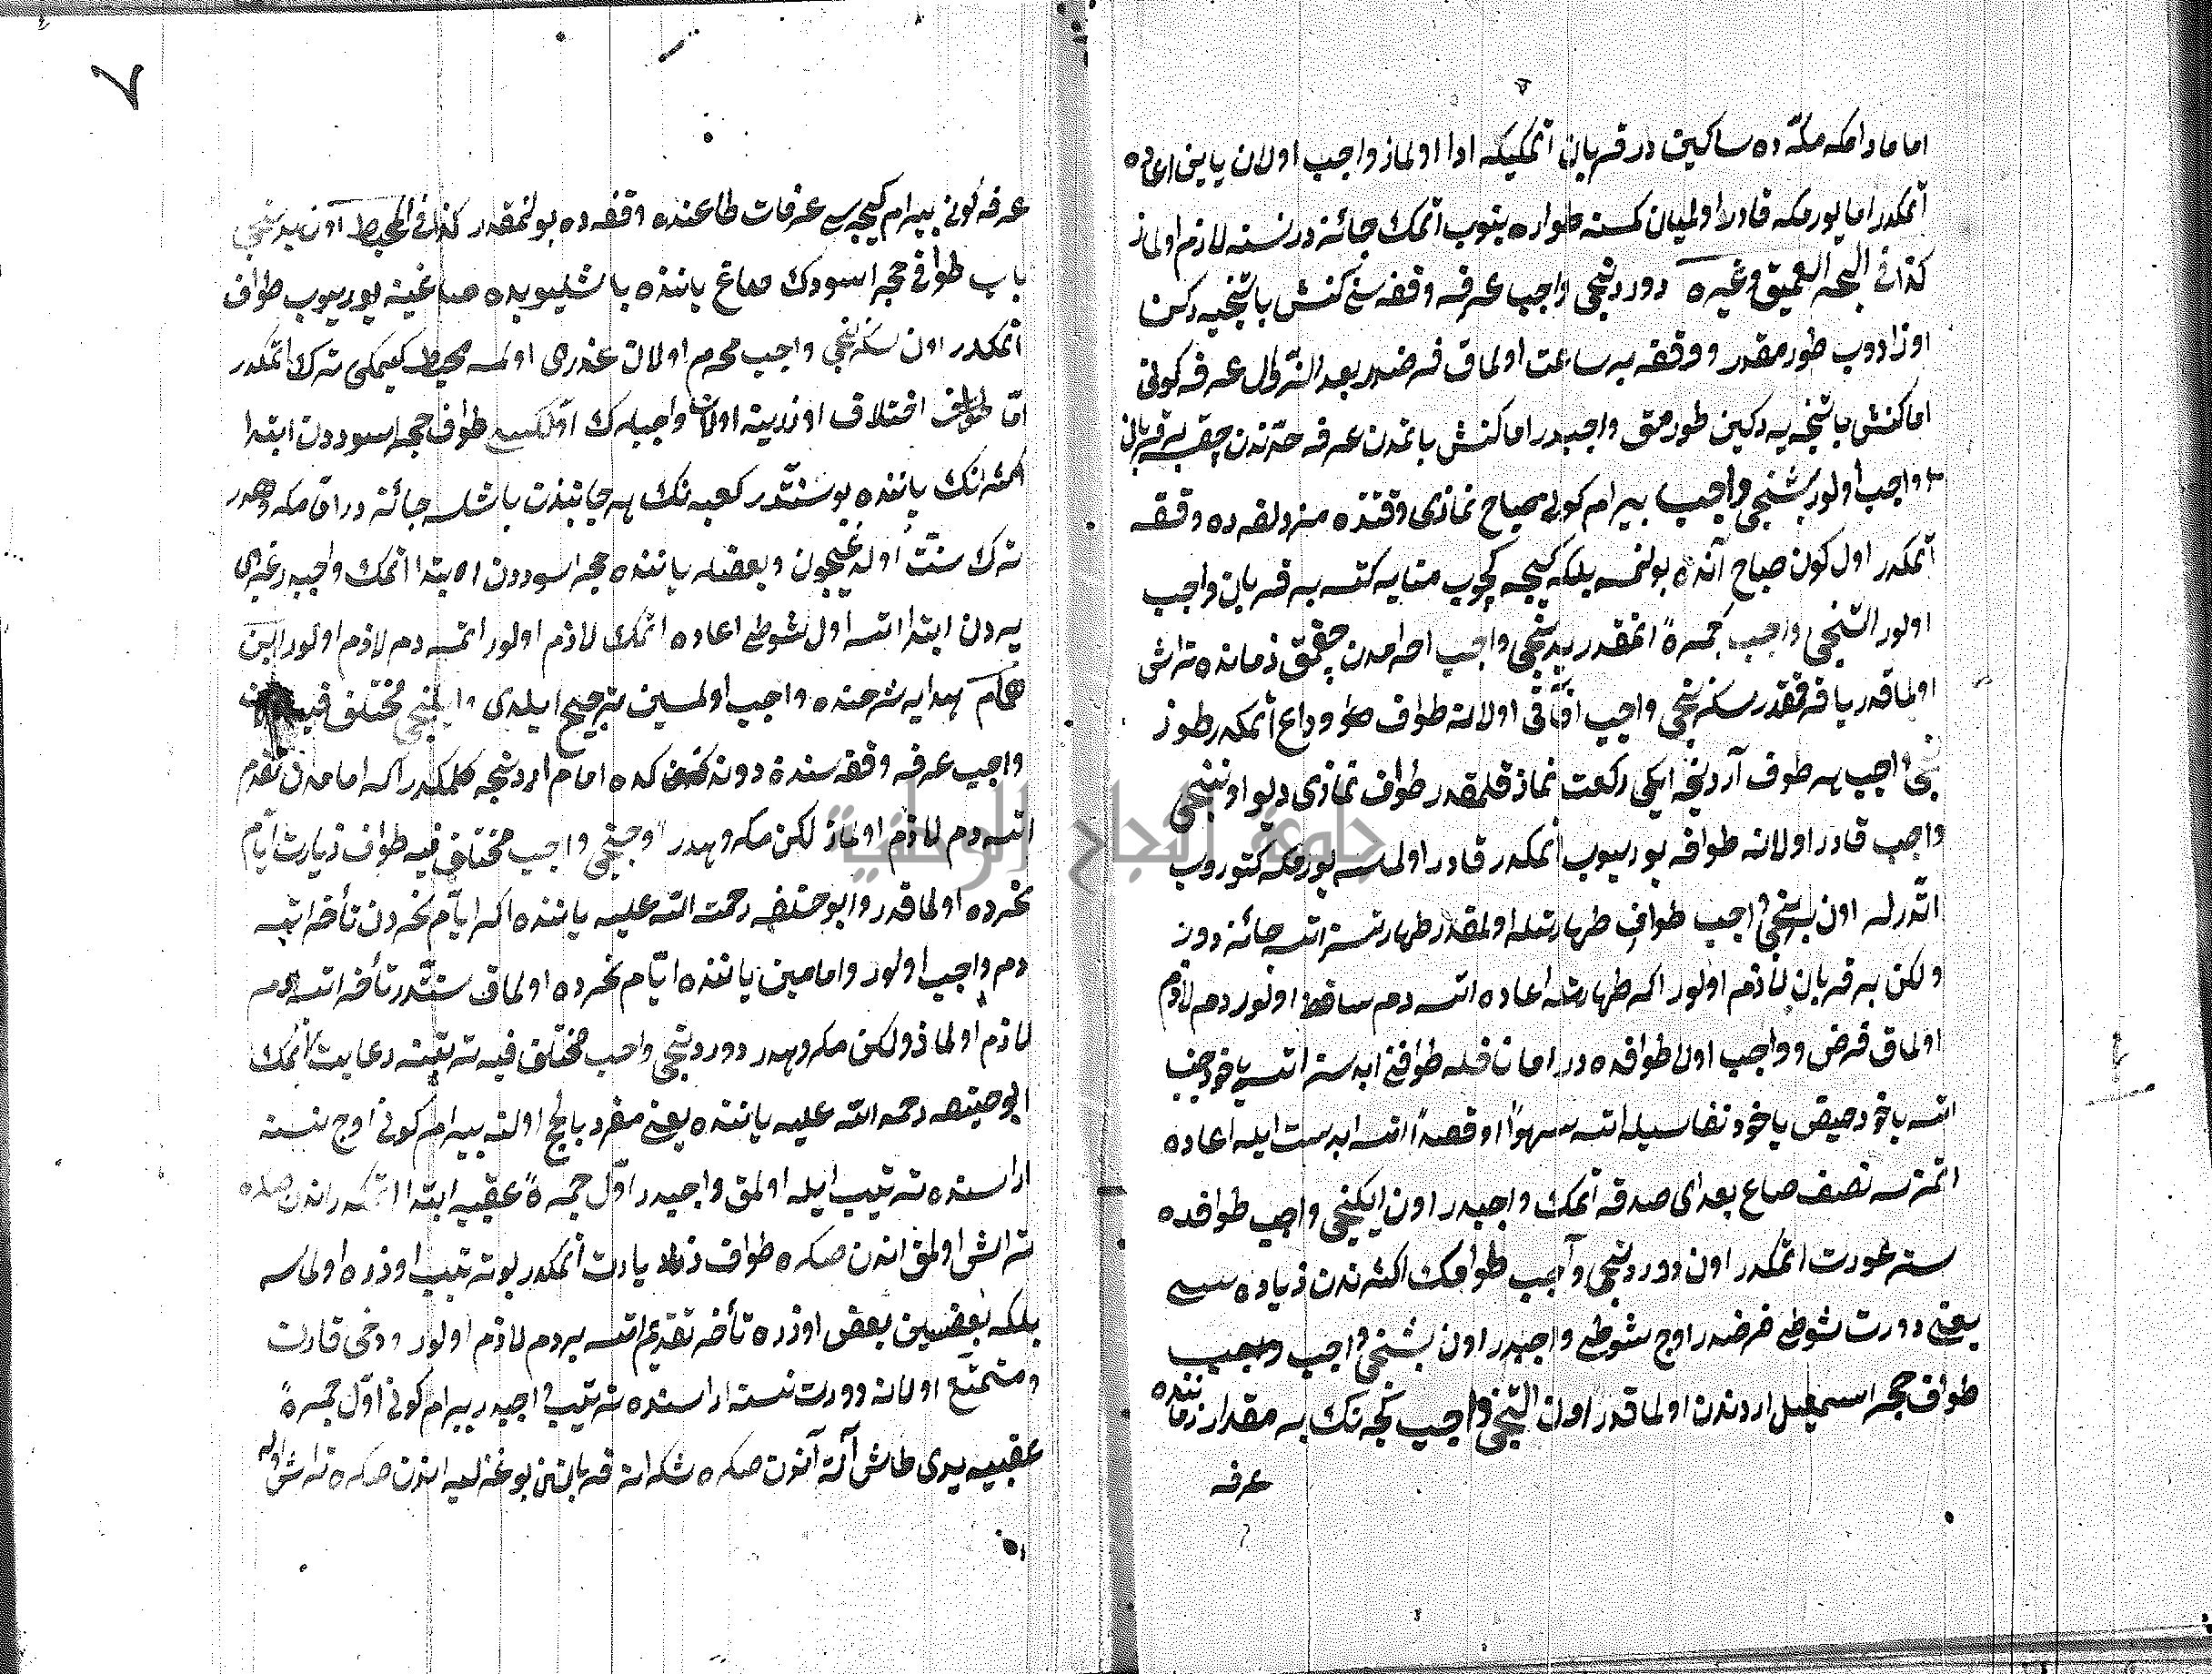 اما مادامكه مكّه ده ساكين در قربان اتمكيكه ادا اولماز واجب اولان ياين اعاده
اتمكدر اما يورمكه قادر اولميان كمسنه طواره بنوب اتمك جائز در نسنه لازم اولماز
كذا في البحر العميق وغيره دوردنجى واجب عرفه وقفه سنى كنش باتنجيه دكن
اوزادوب طورمقدر ووقفه بر ساعت اولماق فرضدر بعد الزوال عرفه كونى
اما كنش باتنجه يه دكين طورمق واجبدر اما كنش باتمدن عرفه حدّندن چقسه بر قربان
واجب اولور بشنجى واجب بيرام كونى صباح نمازى وقتنده مزدلفه ده وقفه
اتمكدر اول كون صباح آنده بولنمسه بلكه كيجه كچوب منايه كتسه بر قربان واجب
اولور التنجى واجب جمرة اتمقدر يدنجى واجب احرامدن چقمق زمانده تراش
اولماقدر يا قرقمقدر سكزنجى واجب افاقى اولانه طواف صدر وداع اتمكدر طوز
نجى واجب هر طوف آردنجه ايكى ركعت نماز قلمقدر طواف نمازى ديو اوننجى
واجب قادر اولانه طوافه يوريوب اتمكدر قادر اولمسه يورمكه كتوروب
اتدرلر اون برنجى واجب طواف طهارتله اولمقدر طهارتسز اتسه جائز دور
ولكن بر قربان لازم اولور اكر طهارتله اعاده اتسه دم ساقط اولور دم لازم
اولماق فرض وواجب اولن طوافده در اما نافله طوافنى ابدستسز اتسه ياخود جنب
اتسه ياخود حيض ياخود نفاسيله اتسه سهوًا او قصدًا اتسه ابدست ايله اعاده
اتمزسه نصف صاع بغداى صدقه اتمك واجبدر اون ايكنجى واجب طوافده
ستر عورت اتمكدر اون دوردنجى واجب طوافك اكثرندن زياده سى
يعنى دورت شوطى فرضدر اوج شوطى واجبدر اون بشنجى واجب
طواف حجر اسمعيل اردندن اولماقدر اون التنجى واجب كجه نك بر مقدار زماننده
عرفه
٧
عرفه كونى بيرام كيجه سى عرفات طاغنده وقفه ده بولنمقدر كذا في المحيط اون يدنجى
باب طوافى حجر اسودك صاغ ياننده باشليوبده صاغينه يوريوب طواف
اتمكدر اون سكزنجى واجب محرم اولان عذرى اولمسه محيط كيمكى ترك اتمكدر
امّا اختلاف اوزرينه اولان واجبلرك اولكسى طوف حجر اسوددن ابتدا
ياننده بو سنّتدر كعبه نك هر جانبندن باشلسه جائز در امّا مكروهدر
ترك سنّت اولدغيچون وبعضلر ياننده حجر اسوددن ابتدا اتمك واجبدر غيرى
يردن ابتدا اتسه اول شوطى اعاده اتمك لازم اولور اتمسه دم لازم اولور ابن
همام هدايه شرحنده واجب اولمسين ترجيح ايلدى وايكنجى مختلف فيه
واجب عرفه وقفه سندن دونه كدنه كده امام اردنجه كلمكدر اكر امامدن تقدم
اتسه دم لازم اولماز لكن مكروهدر اوچنجى واجب مختلف فيه طواف زيارت ايّام
نحرده اولماقدر وابو حنيفه رحمت الله عليه ياننده اكر ايّام نحردن تأخر اتسه
دم واجب اولور وامامين ياننده ايّام نحرده اولماق سنّتدر تأخر اتسه دم
لازم اولماز ولكن مكروهدر دوردنجى واجب مختلف فيه ترتيبه رعايت اتمك
ابو حنيفه رحمه الله عليه ياننده يعنى مفرد بالحج اولنه بيرام كونى اوج نسنه
اراسنده ترتيب ايله اولمق واجبدر اوّل جمرة عقبيه ابتدا اتمكدر اندن صكره
تراش اولمق اندن صكره طواف زيارت اتمكدر بو ترتيب اوزره اولماسه
بلكه بعضيين بعض اوزره تأخر تقديم اتسه بر دم لازم اولور ودخى قارن
ومتمتّع اولانه دورت نسنه اراسنده ترتيب واجبدر بيرام كونى اوّل جمرة
عقبيه يدى طاش آته آندن صكره شكرانه قربانين بوغزليه اندن صكره تراش اوله